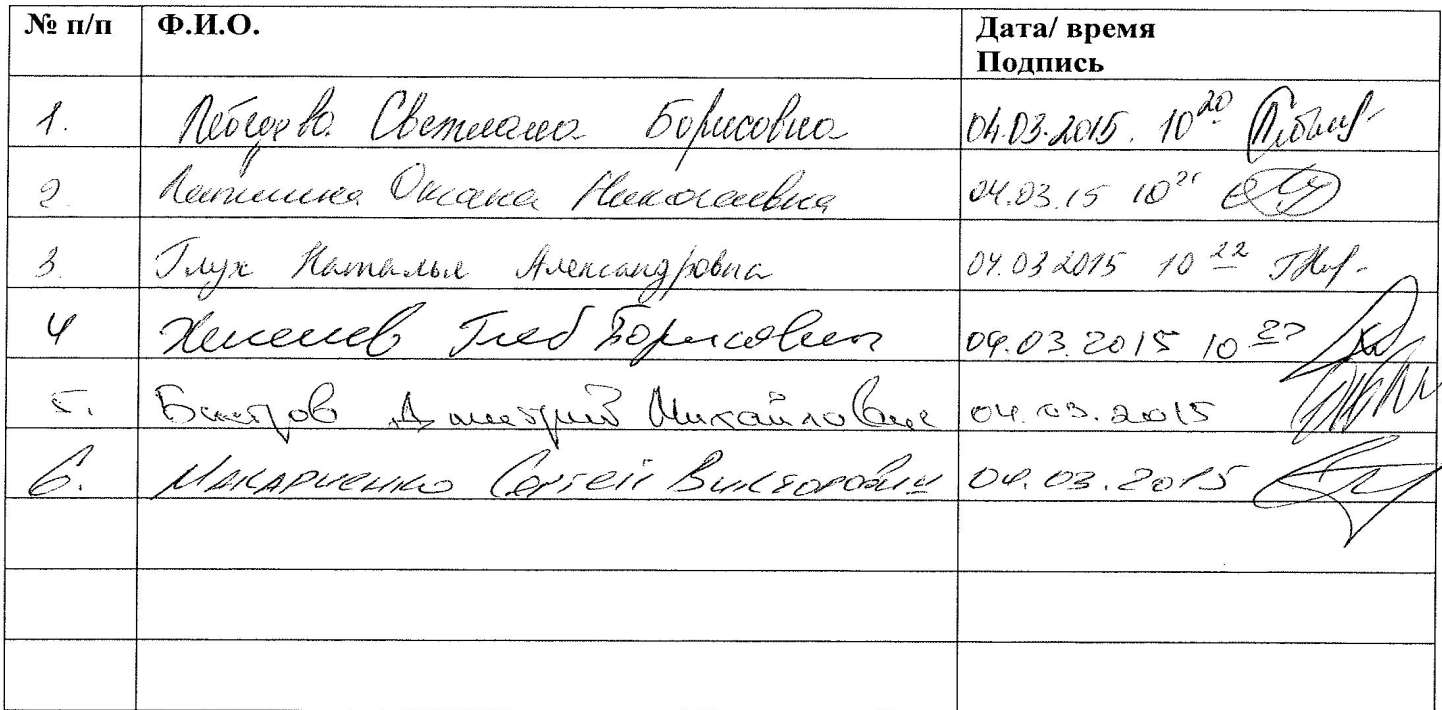 № п/п Ф.И.О. Дата/ время
Подпись
1. Лебедева Светлана Борисовна 04.03.2015. 10 20
2. Оксана Николаевна 04.03.15 10 21
3. Глух Наталья Александровна 04.03 2015 10 22
4 Глеб Борисович 04.03.2015 10
5. Дмитрий Михайлович 04.03.2015
6. Макариенко Сергей Викторович 04.03.2015